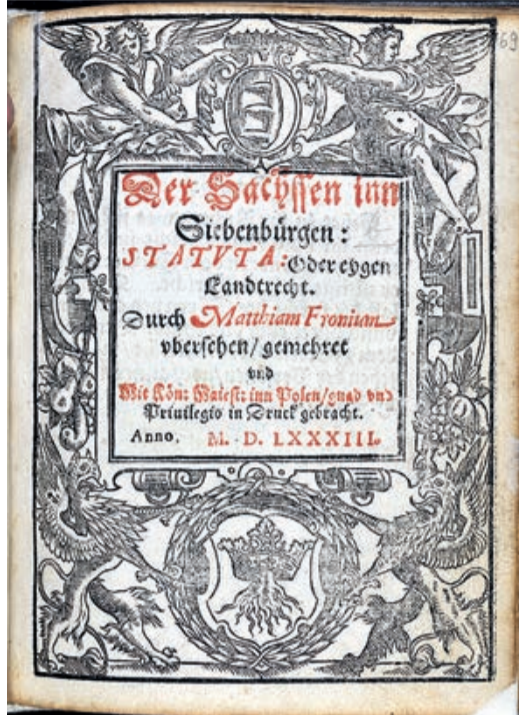 69
Der Sachssen inn
Siebenbürgen:
STATVTA: Oder eygen
Landtrecht.
Durch Matthiam Fronium
vbersehen/ gemehret
vnd
Mit Kön: Maiest: inn Polen/ gnad vnd
Priuilegio in Druck gebracht.
Anno. M. D. LXXXIII.